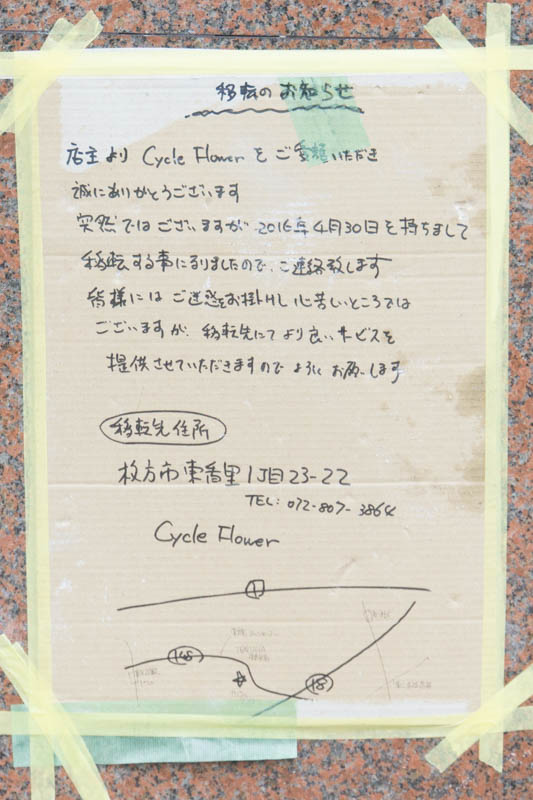 移転のお知らせ
店主より Cycle Flowerをご愛顧いただき
誠にありがとうございます
突然ではございますが 2016年4月30日を持ちまして
移転する事になりましたので、ご連絡致します
皆様には ご迷惑をお掛けし心苦しいところでは
ございますが、移転先にて より良いサービスを
提供させていただきますので よろしくお願いします
移転先住所
枚方市東香里1丁目23-22
TEL: 072-807-3864
Cycle Flower
1
18